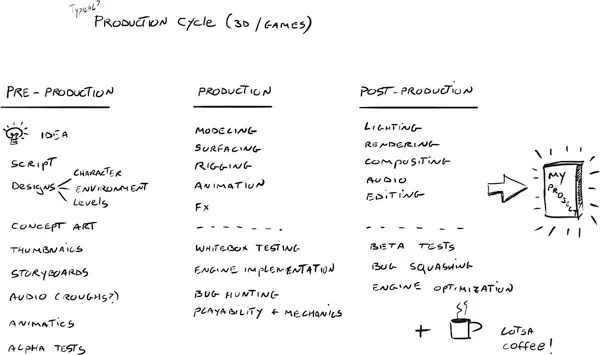 TYPICAL?
PRODUCTION CYCLE (3D/GAMES)
PRE-PRODUCTION
IDEA
SCRIPT
DESIGNS
CHARACTER
ENVIRONMENT
LEVELS
CONCEPT ART
THUMBNAILS
STORYBOARDS
AUDIO (ROUGHS?)
ANIMATICS
ALPHA TESTS
PRODUCTION
MODELING
SURFACING
RIGGING
ANIMATION
FX
WHITEBOX TESTING
ENGINE IMPLEMENTATION
BUG HUNTING
PLAYABILITY + MECHANICS
POST-PRODUCTION
LIGHTING
RENDERING
COMPOSITING
AUDIO
EDITING
BETA TESTS
BUG SQUASHING
ENGINE OPTIMIZATION
+
LOTSA
COFFEE!
MY
PROJECT